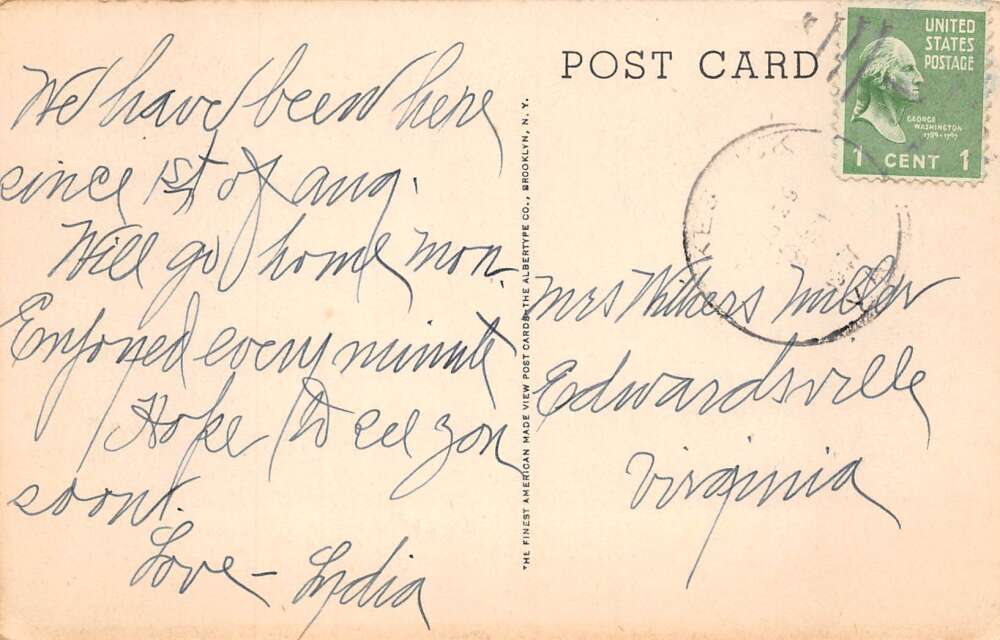 We have been here
since 1st of aug.
Will go home mon.
Enjoyed every minute
Hope to see you
soon.
Love - Lydia
THE FINEST AMERICAN MADE VIEW POST CARDS-THE ALBERTYPE CO., BROOKLYN, N.Y.
POST CARD
UNITED
STATES
POSTAGE
GEORGE
WASHINGTON
1789-1797
1 CENT 1
Mrs Withers Miller
Edwardsville
Virginia